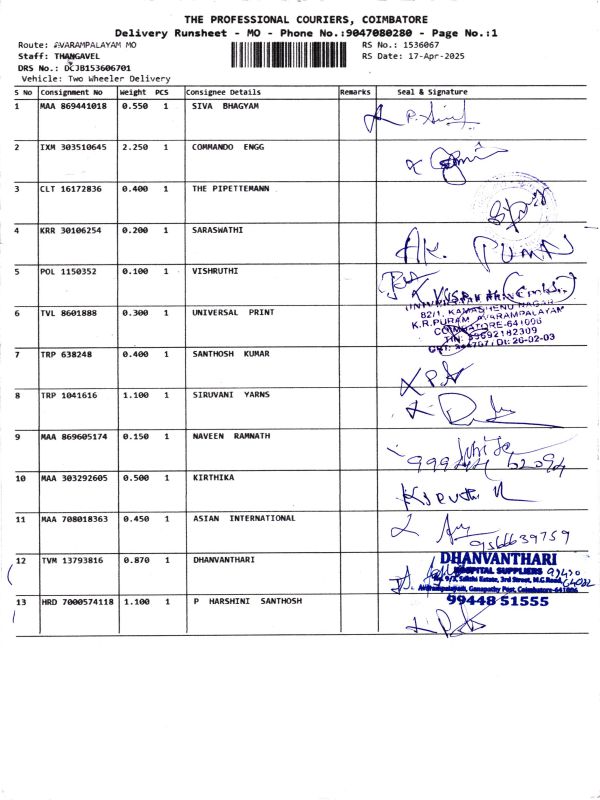 THE PROFESSIONAL COURIERS, COIMBATORE
Delivery Runsheet - MO - Phone No.:9047080280 - Page No.:1
Route: AVARAMPALAYAM MO
RS No.: 1536067
Staff: THANGAVEL
RS Date: 17-Apr-2025
DRS No.: DCJB153606701
Vehicle: Two Wheeler Delivery
S No Consignment No Weight PCS Consignee Details Remarks Seal & Signature
1 MAA 869441018 0.550 1 SIVA BHAGYAM
2 IXM 303510645 2.250 1 COMMANDO ENGG
3 CLT 16172836 0.400 1 THE PIPETTEMANN
4 KRR 30106254 0.200 1 SARASWATHI
5 POL 1150352 0.100 1 VISHRUTHI
6 TVL 8601888 0.300 1 UNIVERSAL PRINT
82/1, KAMADHENU NAGAR
K.R.PURAM, AVARAMPALAYAM
COIMBATORE-641006
7 TRP 638248 0.400 1 SANTHOSH KUMAR
8 TRP 1041616 1.100 1 SIRUVANI YARNS
9 MAA 869605174 0.150 1 NAVEEN RAMNATH
10 MAA 303292605 0.500 1 KIRTHIKA
11 MAA 708018363 0.450 1 ASIAN INTERNATIONAL
9566639759
12 TVM 13793816 0.870 1 DHANVANTHARI
DHANVANTHARI
HOSPITAL SUPPLIERS
3rd Street, M.G.Road,
Avarampalayam, Ganapathy Post, Coimbatore-641006
99448 51555
13 HRD 7000574118 1.100 1 P HARSHINI SANTHOSH